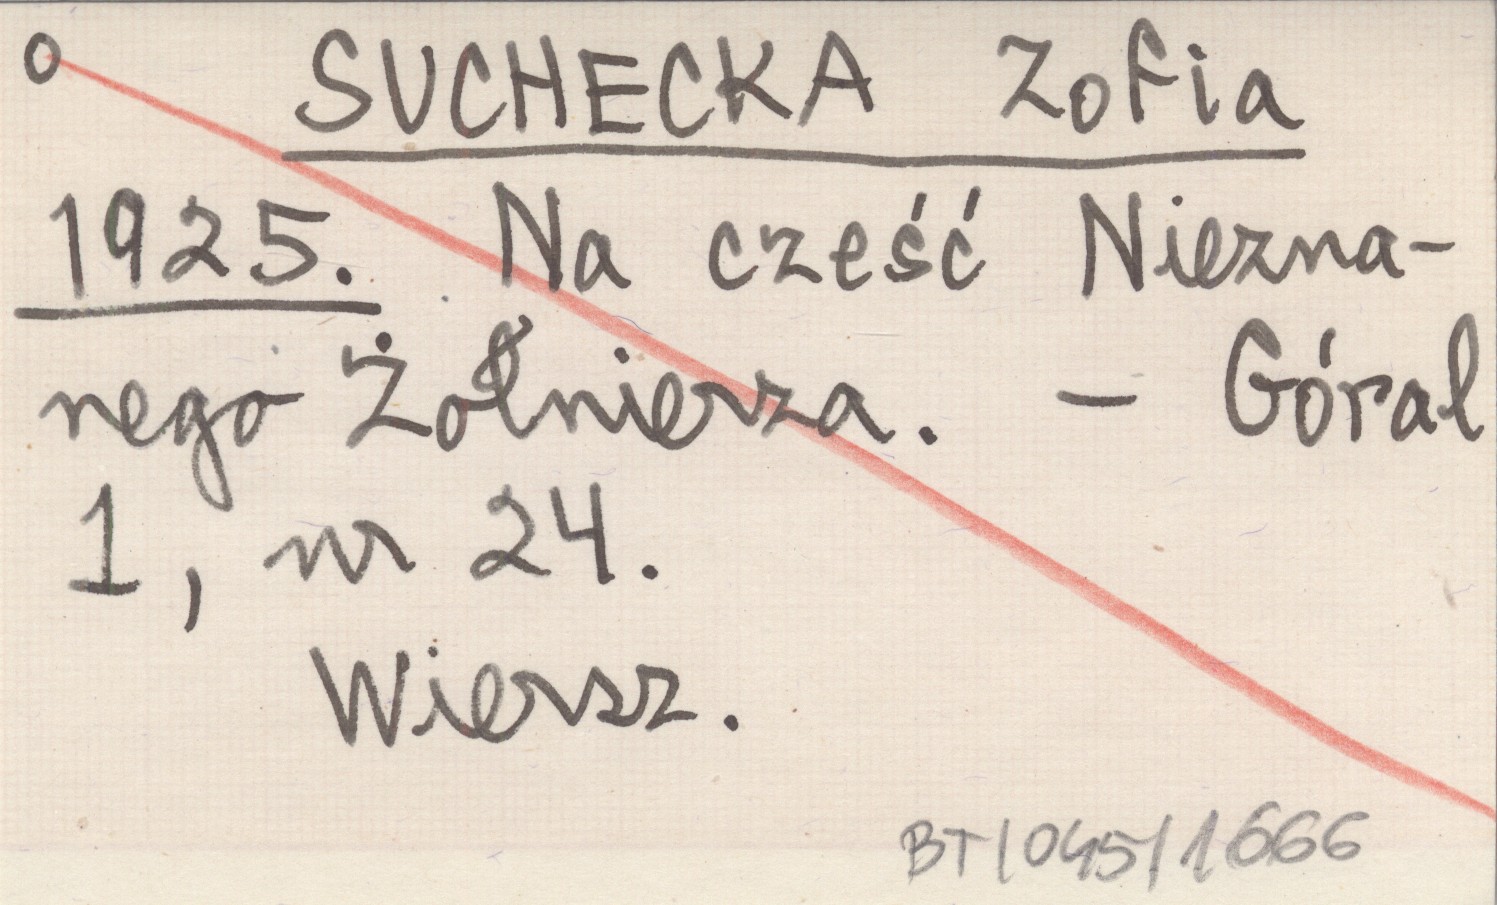 o SUCHECKA Zofia
1925. Na cześć Niezna-
nego Żołnierza. - Góral
1, nr 24.
Wiersz.
BT/045/1666